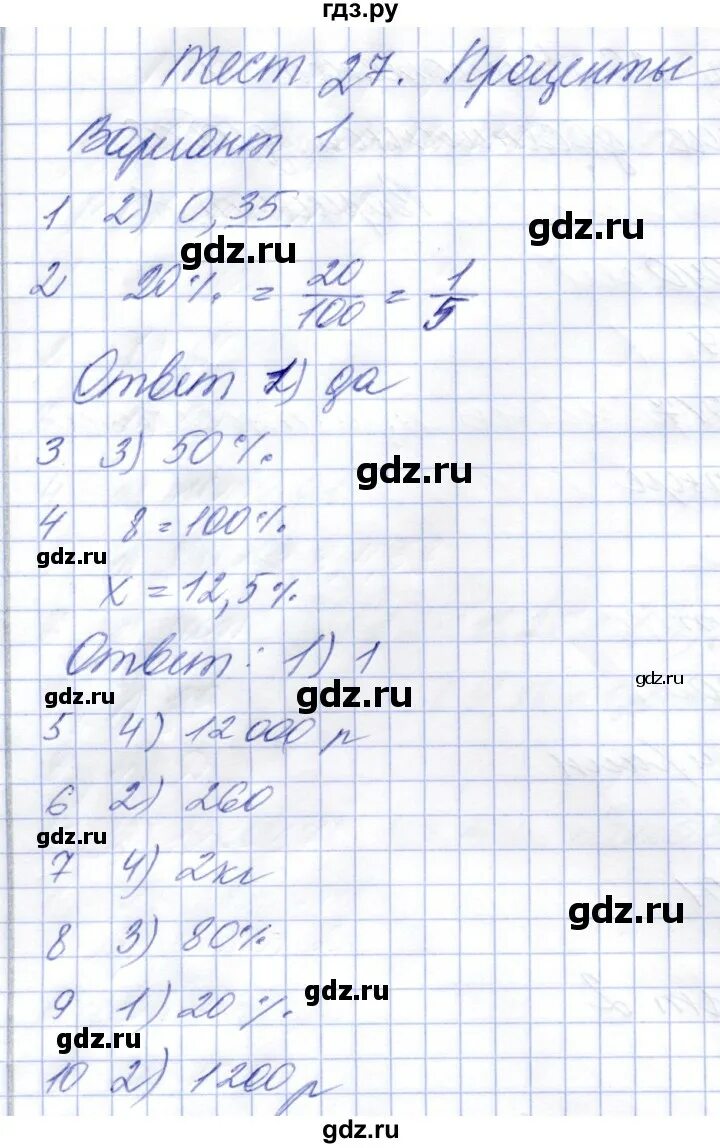 гдз.ру
Тест 27. Проценты
Вариант 1
1 2) 0,35
gdz.ru
gdz.ru
2 20% = 20/100 = 1/5
Ответ 1) да
3 3) 50%
gdz.ru
4 8 = 100%
gdz.ru
x = 12,5%
Ответ: 1) 1
gdz.ru
gdz.ru
gdz.ru
5 4) 12000 р
6 2) 260
gdz.ru
7 4) 2кг
gdz.ru
8 3) 80%
gdz.ru
9 1) 20%
gdz.ru
10 2) 1200 р
gdz.ru